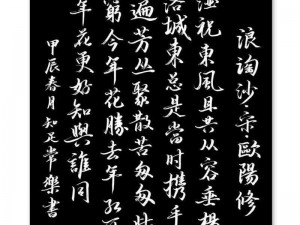 浪淘沙·宋歐陽修
酒祝東風且共從容垂楊
洛城東總是當时携手
遍芳丛聚散苦匆匆
窮今年花勝去年紅可
年花更好知與誰同
甲辰春月知足常樂書